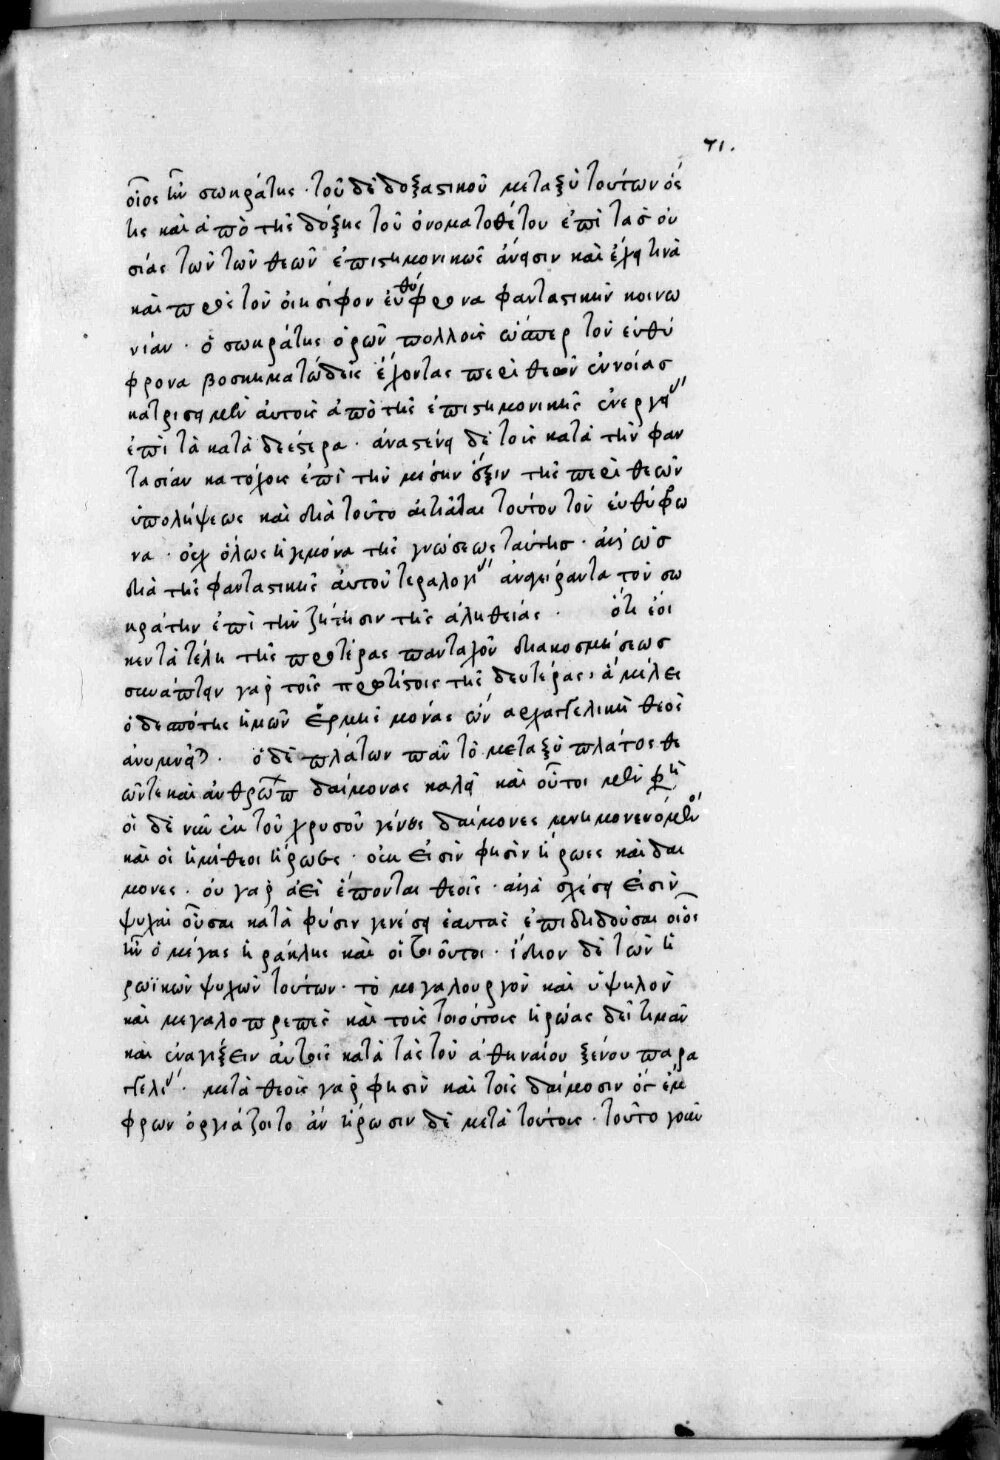 71.
οἷος ἦν σωκράτης · τοῦ δὲ δοξαστικοῦ μεταξὺ τούτων ὅς
τις καὶ ἀπὸ τῆς δόξης τοῦ ὀνοματοθέτου ἐπὶ τὰς οὐ
σίας τῶν τῶν θεῶν ἐπιστημονικῶς ἄνεισιν καὶ ἔχει τινὰ
καὶ πρὸς τὸν οἰησίφρον εὐθύφρονα φανταστικὴν κοινω
νίαν · ὁ σωκράτης ὁρῶν πολλοὺς ὥσπερ τὸν εὐθύ
φρονα βοσκηματώδεις ἔχοντας περὶ θεῶν ἐννοίας
κάτεισι μὲν αὐτοῖς ἀπὸ τῆς ἐπιστημονικῆς ἐνεργεί
ἐπὶ τὰ καταδεέστερα · ἀνατείνει δὲ τοὺς κατὰ τὴν φαν
τασίαν κατόχους ἐπὶ τὴν μέσην ἕξιν τῆς περὶ θεῶν
ὑπολήψεως καὶ διὰ τοῦτο αἰτιᾶται τούτου τὸν εὐθύφρο
να · οὐχ ὅλως ἡγεμόνα τῆς γνώσεως ταύτης · ἀλλ ὡς
διὰ τῆς φανταστικῆς αὐτοῦ τεραλογί ἀνεγείραντα τὸν σω
κράτην ἐπὶ τὴν ζήτησιν τῆς ἀληθείας · ὅτι ἔοι
κεν τὰ τέλη τῆς προτέρας πανταχοῦ διακοσμήσεως
συνάπτειν γὰρ τοῖς πρωτίστοις τῆς δευτέρας, ἀμέλει
ὁ δεσπότης ἡμῶν ἑρμῆς μονάς ὢν ἀρχαγγελικὴ θεὸς
ἀνυμνεῖται · ὁ δὲ πλάτων πᾶν τὸ μεταξὺ πλάτος θε
ῶν τε καὶ ἀνθρώπ δαίμονας καλεῖ καὶ οὗτοι μὲν
οἱ δὲ νῦν ἐκ τοῦ χρυσοῦ γένους δαίμονες μνημονευόμενοι
καὶ οἱ ἡμίθεοι ἥρωες · οὐκ εἰσὶν φησὶν ἥρωες καὶ δαι
μονες · οὐ γὰρ ἀεὶ ἕπονται θεοῖς · ἀλλὰ σχέσει εἰσὶν
ψυχαὶ οὖσαι κατὰ φύσιν γενέσει ἑαυτὰς ἐπιδιδοῦσαι οἷος
ἦν ὁ μέγας ἡρακλῆς καὶ οἱ τοιοῦτοι · ἴδιον δὲ τῶν ἡ
ρωϊκῶν ψυχῶν τούτων · τὸ μεγαλουργὸν καὶ ὑψηλὸν
καὶ μεγαλοπρεπὲς καὶ τοὺς τοιούτους ἥρωας δεῖ τιμᾶν
καὶ ἐναγίζειν αὐτοῖς κατὰ τὰς τοῦ ἀθηναίου ξένου παρα
γγελί · μετὰ θεοὺς γὰρ φησὶν καὶ τοῖς δαίμοσιν ὅς ἔμ
φρων ὀργιάζοιτο ἂν ἥρωσιν δὲ μετὰ τούτους · τοῦτο γοῦν